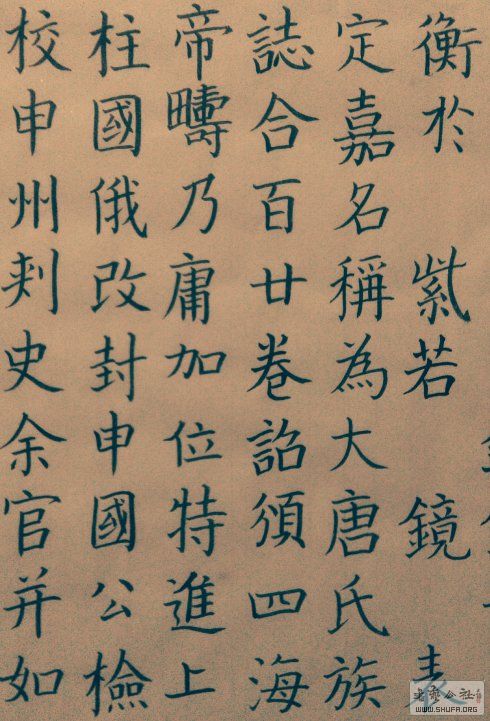 衡於 紫若 鏡 表
定嘉名稱為大唐氏族
誌合百廿卷詔頒四海
帝疇乃庸加位特進上
柱國俄改封申國公檢
校申州刾史余官并如
書聚公社
WWW.SHUFA.ORG